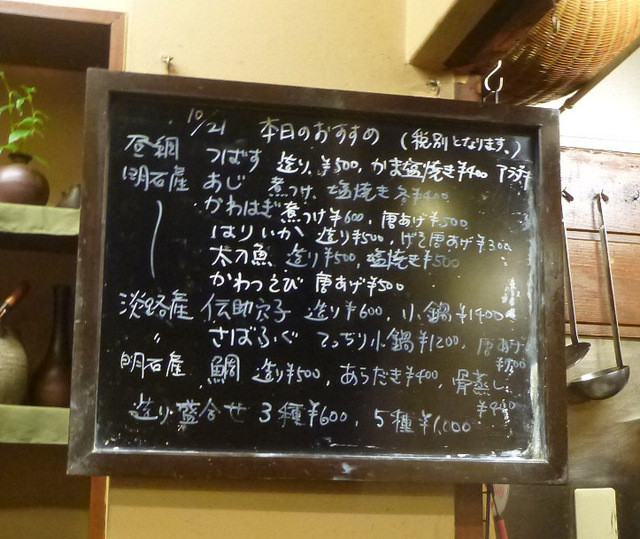 10/21 本日のおすすめ (税別となります。)
昼網 つばす 造り、¥500、かま塩焼き¥400
明石産 あじ 煮つけ、塩焼き各¥400
かわはぎ煮つけ¥600、唐あげ¥500
はりいか 造り¥500、げそ唐あげ¥300
太刀魚 造り¥500、塩焼き¥500
かわつえび 唐あげ¥500
淡路産 伝助穴子 造り¥600、小鍋¥1400
〃 さばふぐ てっちり小鍋¥1200、唐あげ
明石産 鯛 造り¥500、あらだき¥400、骨蒸し
造り盛合せ 3種¥600、5種¥1,000